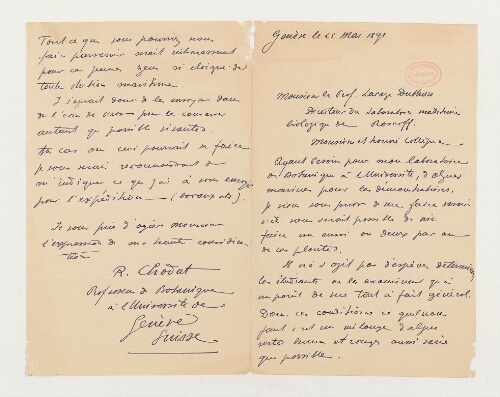 Genève le 25 Mai 1891
Monsieur le Prof. Lacaze Duthiers
Directeur du laboratoire maritime
biologique de Roscoff.
Monsieur et honoré Collègue.
Ayant besoin pour mon laboratoire
de Botanique à l'Université, d'algues
marines pour les démonstrations,
je viens vous prier de me faire savoir
s'il vous serait possible de me
faire un envoi ou deux par an
de ces plantes.
Il ne s'agit pas d'espèces déterminées
les étudiants en les examinant qu'à
un point de vue tout à fait général.
Dans ces conditions ce qu'il nous
faut c'est un mélange d'algues
vertes brunes et rouges aussi varié
que possible.
Tout ce que vous pourrez nous
faire parvenir serait intéressant
pour ces jeunes gens si éloignés de
toute station maritime.
Il s'agirait donc de les envoyer dans
de l'eau de mer pour les conserver
autant que possible vivantes.
En cas où ceci pourrait se faire
je vous serai reconnaissant de
m'indiquer ce que j'ai à vous envoyer
pour l'expédition - (bocaux etc).
Je vous prie d'agréer monsieur
l'expression de ma haute considéra-
tion
R. Chodat
Professeur de Botanique
à l'Université de
Genève
Suisse